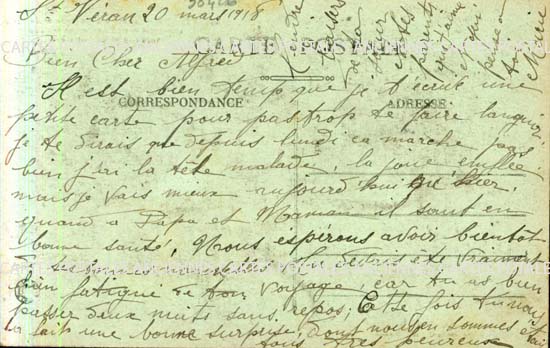 St Véran 20 mars 1918
CARTE POSTALE
Bien Cher Alfred
Il est bien temps que je t'écrive une
CORRESPONDANCE
ADRESSE
petite carte pour pas trop te faire languir
je te dirais que depuis lundi ca marche pas
bien j'ai la tête malade, la joue enflée
mais je vais mieux aujourd'hui que hier.
quand a Papa et Maman il sont en
bonne santé. Nous espérons avoir bientôt
de tes nouvelles tu devais ete vraiment
bien fatigué de ton voyage, car tu as bien
passer deux nuits sans repos, Cette fois tu nous
a fait une bonne surprise, dont nous en sommes
tous très heureux
Tendre
baisers
de ta
soeur
parents
qui
pense
a toi
Marie